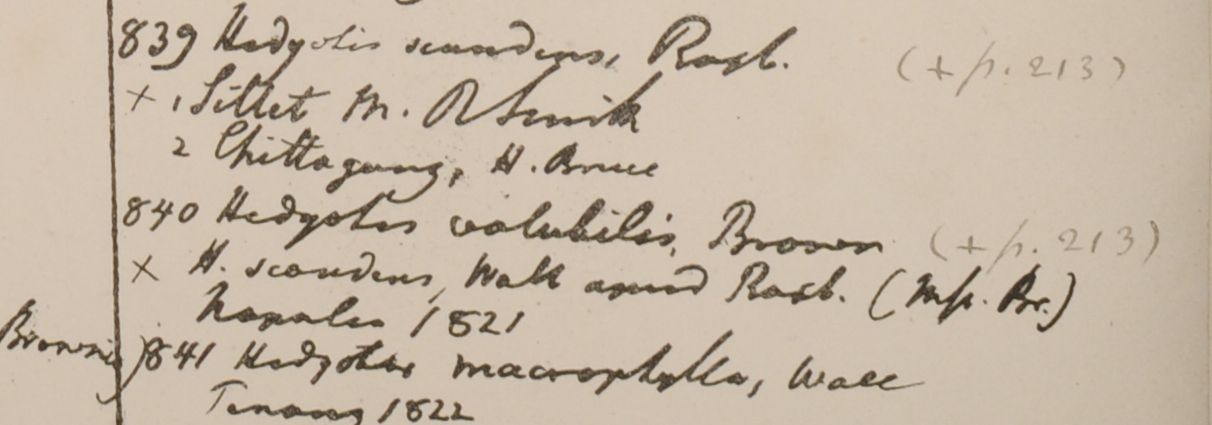 839 Hedyotis scandens, Roxb. (+ p. 213)
× 1 Sillet M. R Smith
2 Chittagong, H. Bruce
840 Hedyotis volubilis, Brown (+ p. 213)
× H. scandens, Wall apud Roxb. (Mss. Br.)
Napalia 1821
841 Hedyotis macrophylla, Wall
Penang 1822